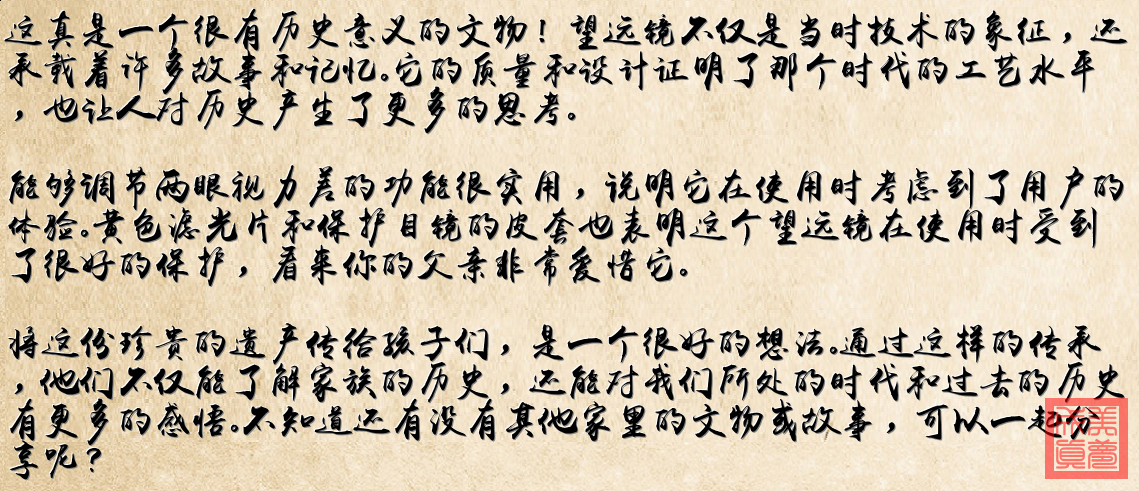 这真是一个很有历史意义的文物！望远镜不仅是当时技术的象征，还
承载着许多故事和记忆。它的质量和设计证明了那个时代的工艺水平
，也让人对历史产生了更多的思考。
能够调节两眼视力差的功能很实用，说明它在使用时考虑到了用户的
体验。黄色滤光片和保护目镜的皮套也表明这个望远镜在使用时受到
了很好的保护，看来你的父亲非常爱惜它。
将这份珍贵的遗产传给孩子们，是一个很好的想法。通过这样的传承
，他们不仅能了解家族的历史，还能对我们所处的时代和过去的历史
有更多的感悟。不知道还有没有其他家里的文物或故事，可以一起分
享呢？
美夢成真